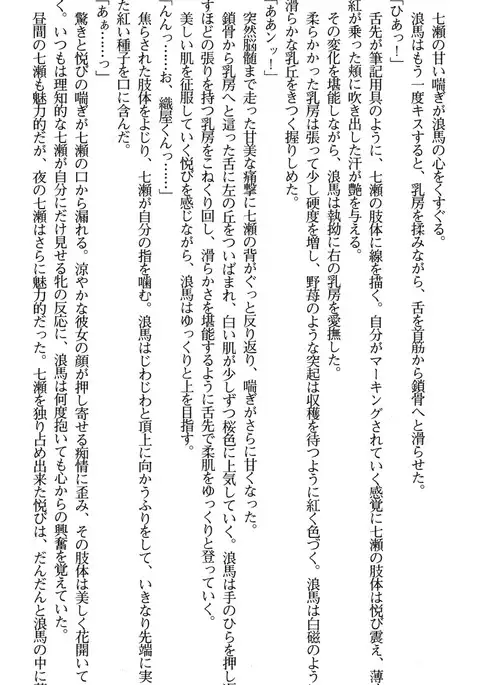 七瀬の甘い喘ぎが浪馬の心をくすぐる。
浪馬はもう一度キスすると、乳房を揉みながら、舌を首筋から鎖骨へと滑らせた。
「ひあっ！」
舌先が筆記用具のように、七瀬の肢体に線を描く。自分がマーキングされていく感覚に七瀬の肢体は悦び震え、薄
紅が乗った頬に吹き出した汗が艶を与える。
その変化を堪能しながら、浪馬は執拗に右の乳房を愛撫した。
柔らかかった乳房は張って少し硬度を増し、野苺のような突起は収穫を待つように紅く色づく。浪馬は白磁のよう
滑らかな乳丘をきつく握りしめた。
「ああンッ！」
突然脳髄まで走った甘美な痛撃に七瀬の背がぐっと反り返り、喘ぎがさらに甘くなった。
鎖骨から乳房へと這った舌に左の丘をついばまれ、白い肌が少しずつ桜色に上気していく。浪馬は手のひらを押し
すほどの張りを持つ乳房をこねくり回し、滑らかさを堪能するように舌先で柔肌をゆっくりと登っていく。
美しい肌を征服していく悦びを感じながら、浪馬はゆっくりと上を目指す。
「んんっ……お、織屋くんっ……」
焦らされた肢体をよじり、七瀬が自分の指を噛む。浪馬はじわじわと頂上に向かうふりをして、いきなり先端に実
た紅い種子を口に含んだ。
「あぁ……っ」
驚きと悦びの喘ぎが七瀬の口から漏れる。涼やかな彼女の顔が押し寄せる痴情に歪み、その肢体は美しく花開いて
く。いつもは理知的な七瀬が自分にだけ見せる牝の反応に、浪馬は何度抱いても心からの興奮を覚えていた。
昼間の七瀬も魅力的だが、夜の七瀬はさらに魅力的だった。七瀬を独り占め出来た悦びは、だんだんと浪馬の中に